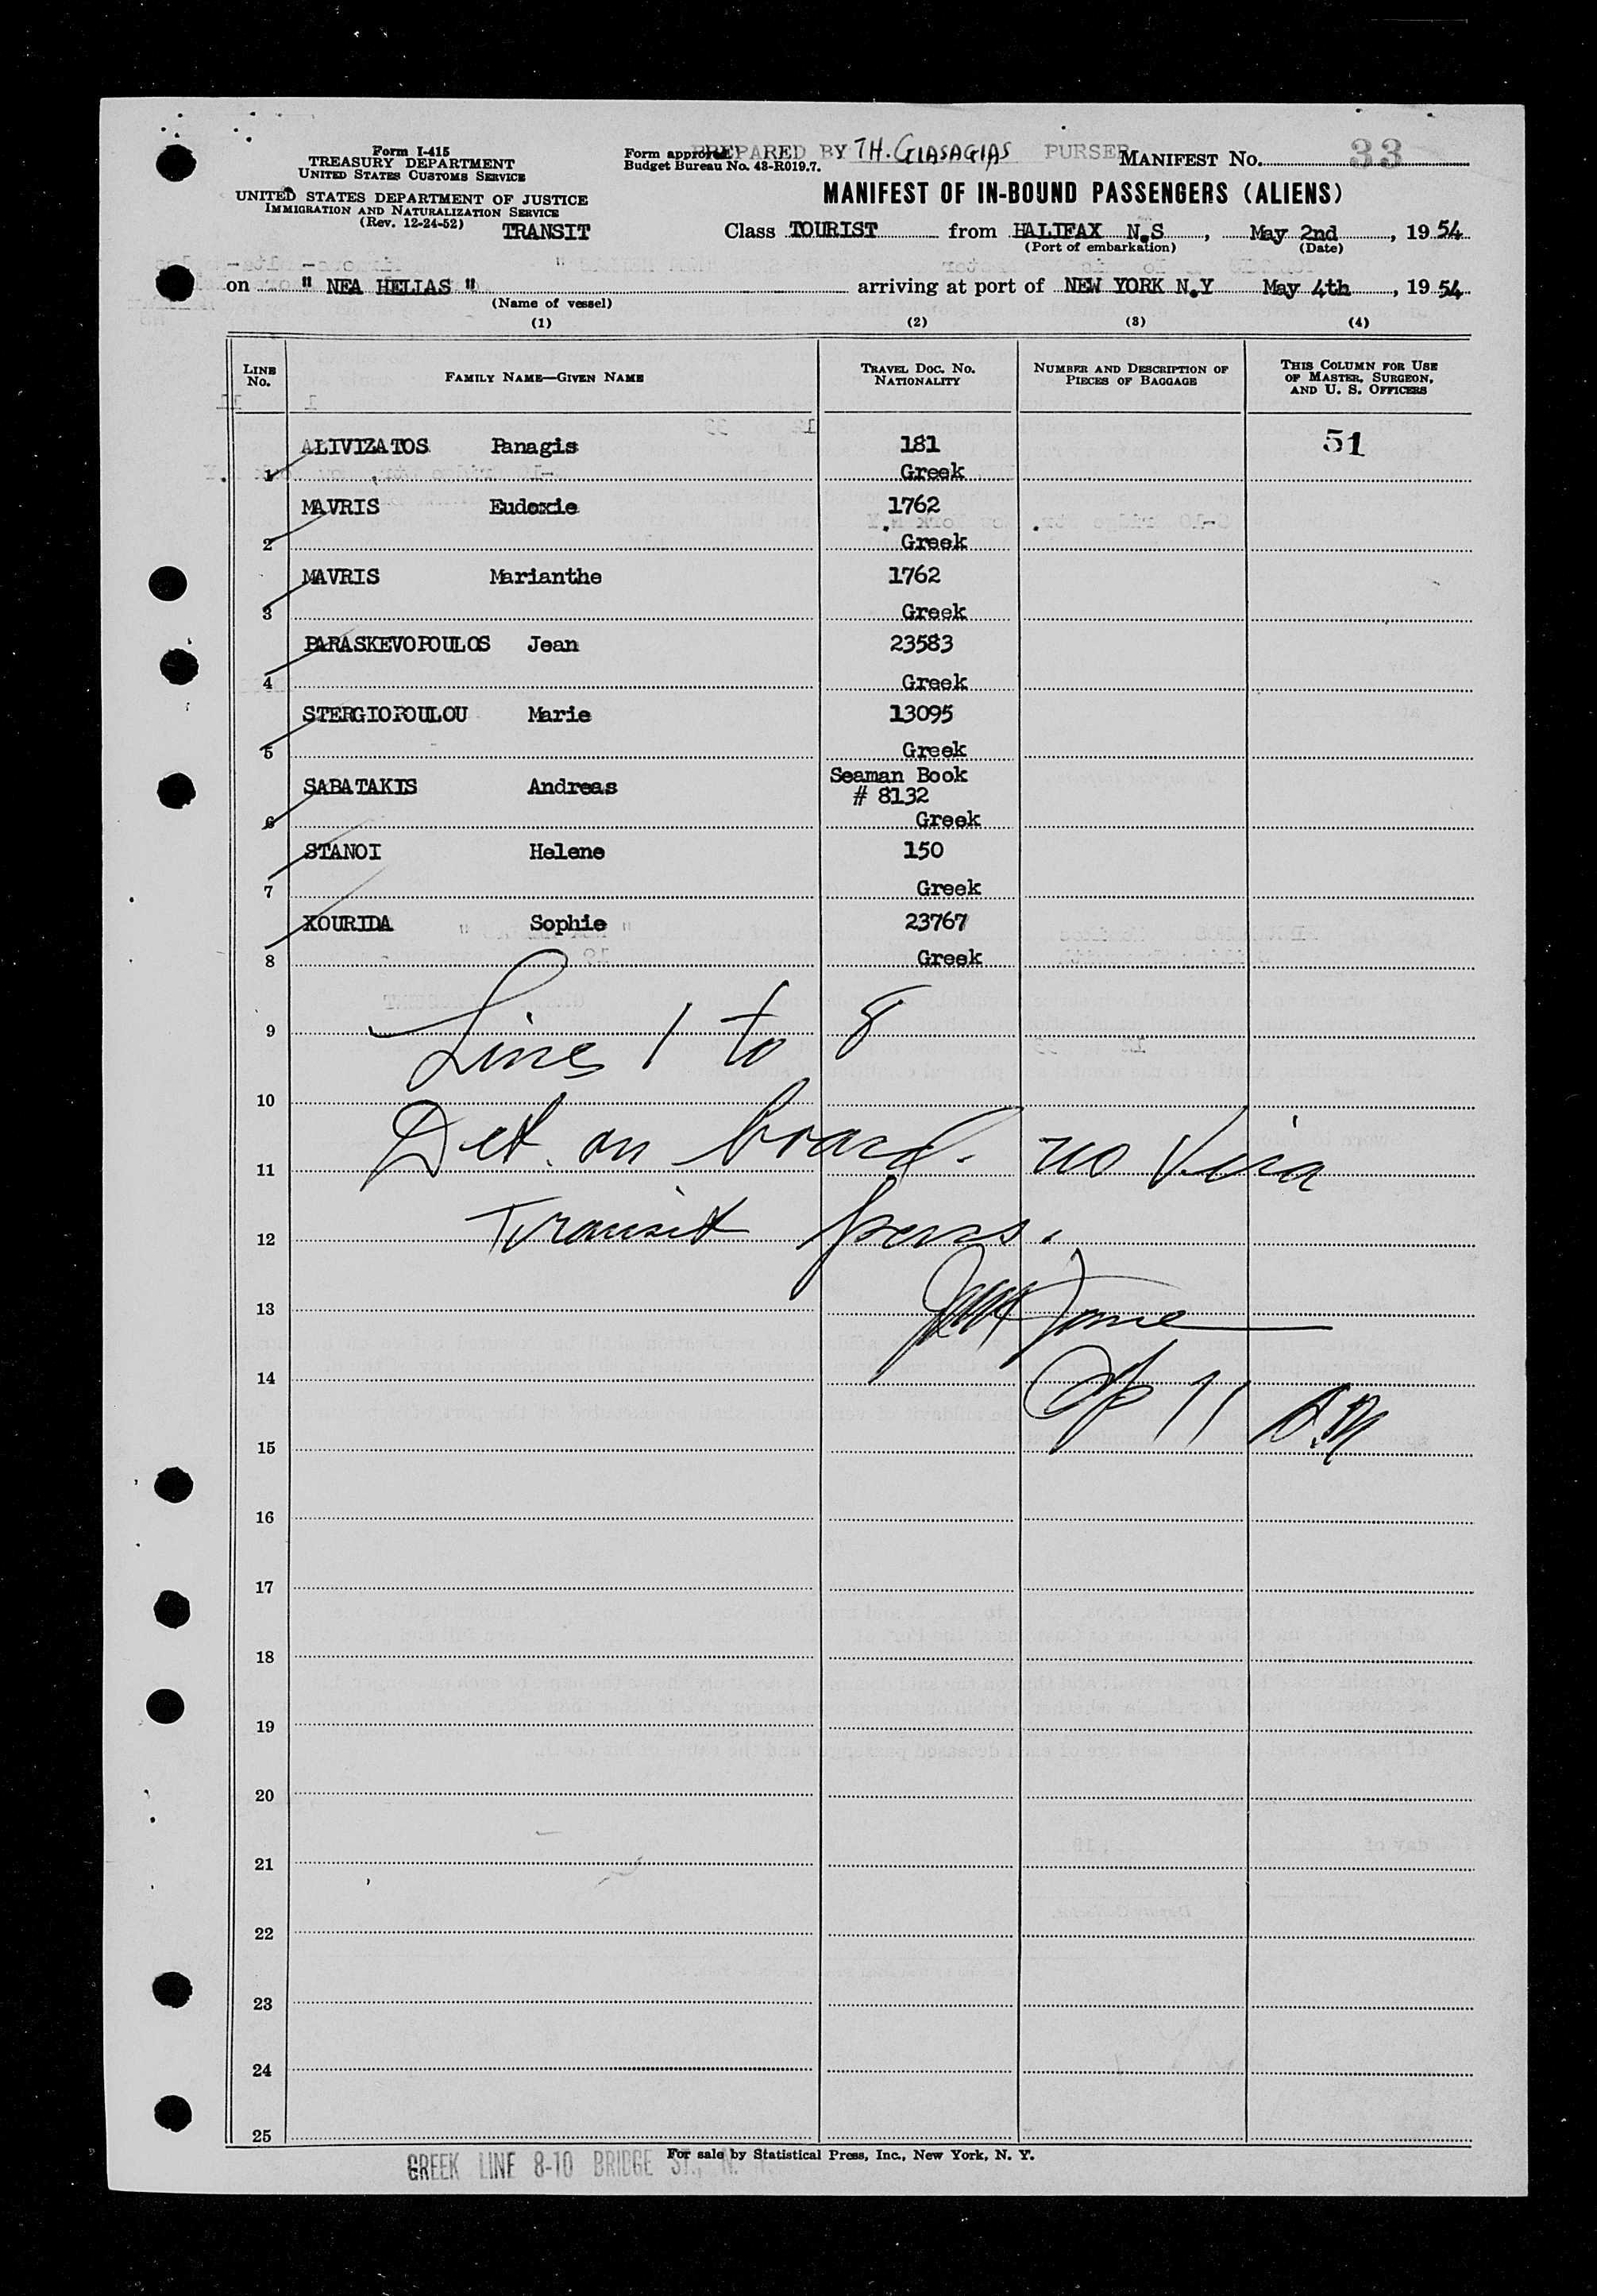 Form I-415
TREASURY DEPARTMENT
UNITED STATES CUSTOMS SERVICE
UNITED STATES DEPARTMENT OF JUSTICE
IMMIGRATION AND NATURALIZATION SERVICE
(Rev. 12-24-52)
TRANSIT
Form approved.
Budget Bureau No. 43-R019.7.
PREPARED BY TH. GLASAGIAS PURSER
MANIFEST No. 33
MANIFEST OF IN-BOUND PASSENGERS (ALIENS)
Class TOURIST from HALIFAX N.S , May 2nd , 19 54
(Port of embarkation) (Date)
on " NEA HELLAS " arriving at port of NEW YORK N.Y May 4th , 19 54
(Name of vessel)
(1) (2) (3) (4)
LINE No. FAMILY NAME—GIVEN NAME TRAVEL DOC. NO. NATIONALITY NUMBER AND DESCRIPTION OF PIECES OF BAGGAGE THIS COLUMN FOR USE OF MASTER, SURGEON, AND U. S. OFFICERS
ALIVIZATOS Panagis 181 51
1 Greek
MAVRIS Eudoxie 1762
2 Greek
MAVRIS Marianthe 1762
3 Greek
PARASKEVOPOULOS Jean 23583
4 Greek
STERGIOPOULOU Marie 13095
5 Greek
SABATAKIS Andreas Seaman Book
# 8132
6 Greek
STANOI Helene 150
7 Greek
XOURIDA Sophie 23767
8 Greek
9 Lines 1 to 8
10
11 Det. on board. no Visa
12 Transit pass.
13
14
15
16
17
18
19
20
21
22
23
24
25
For sale by Statistical Press, Inc., New York, N. Y.
GREEK LINE 8-10 BRIDGE ST., N.